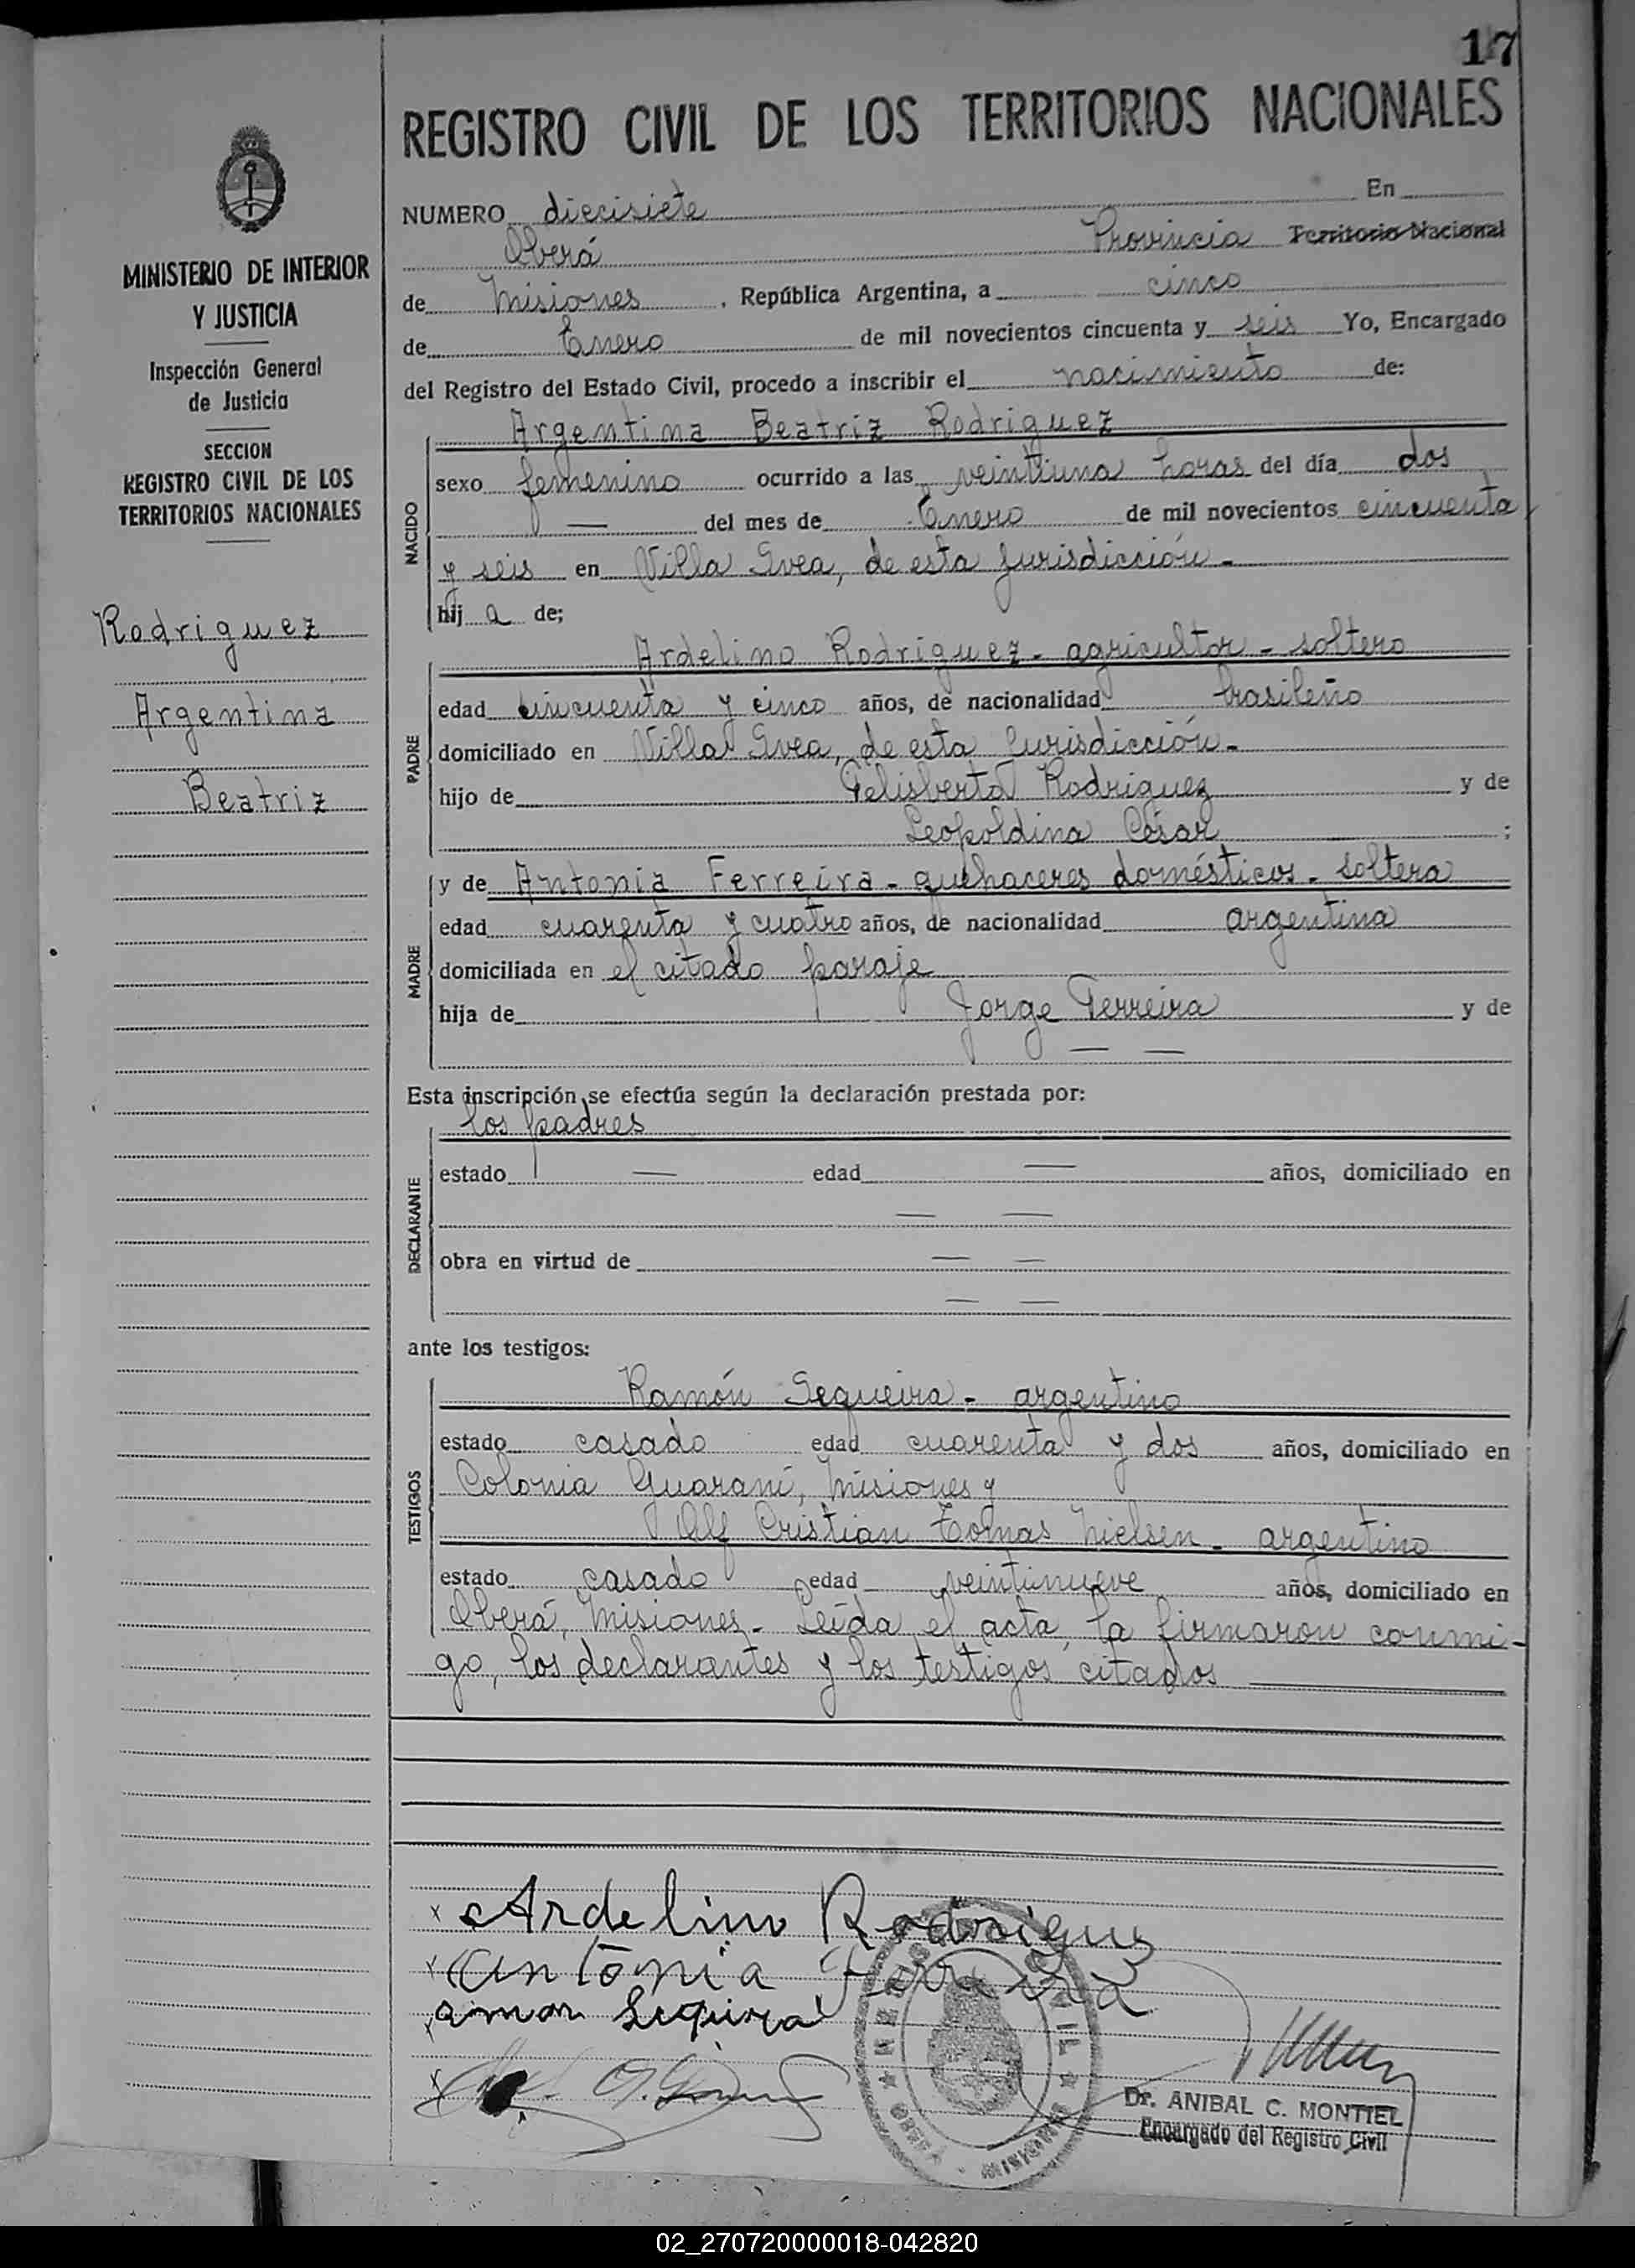 17
REGISTRO CIVIL DE LOS TERRITORIOS NACIONALES
MINISTERIO DE INTERIOR
Y JUSTICIA
Inspección General
de Justicia
SECCION
REGISTRO CIVIL DE LOS
TERRITORIOS NACIONALES
Rodriguez
Argentina
Beatriz
NUMERO diecisiete En
Oberá Provincia Territorio Nacional
de Misiones, República Argentina, a cinco
de Enero de mil novecientos cincuenta y seis Yo, Encargado
del Registro del Estado Civil, procedo a inscribir el nacimiento de:
NACIDO
Argentina Beatriz Rodriguez
sexo femenino ocurrido a las veintiuna horas del día dos
— del mes de Enero de mil novecientos cincuenta
y seis en Villa Svea, de esta jurisdicción -
hij a de;
PADRE
Ardelino Rodriguez - agricultor - soltero
edad cincuenta y cinco años, de nacionalidad brasileño
domiciliado en Villa Svea, de esta jurisdicción -
hijo de Felisberto Rodriguez y de
Leopoldina César ;
MADRE
y de Antonia Ferreira - quehaceres domésticos - soltera
edad cuarenta y cuatro años, de nacionalidad argentina
domiciliada en el citado paraje
hija de Jorge Ferreira y de
— —
Esta inscripción se efectúa según la declaración prestada por:
DECLARANTE
los padres
estado — edad — años, domiciliado en
— —
obra en virtud de — —
— —
ante los testigos:
TESTIGOS
Ramón Sequeira - argentino
estado casado edad cuarenta y dos años, domiciliado en
Colonia Guaraní, Misiones y
Olf Cristian Tomas Nielsen - argentino
estado casado edad veintinueve años, domiciliado en
Oberá, Misiones - Leída el acta, la firmaron conmi-
go, los declarantes y los testigos citados
x Ardelino Rodrigus
x Antônia Ferreira
x amon Sequira
x
OBERÁ - MISIONES
Dr. ANIBAL C. MONTIEL
Encargado del Registro Civil
02_270720000018-042820